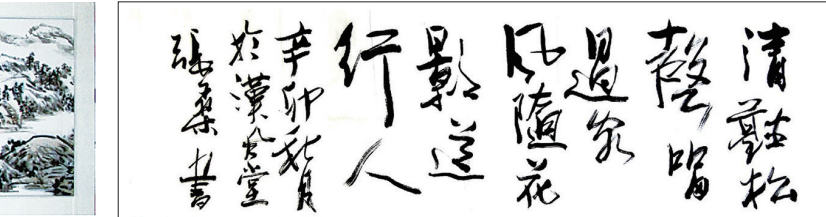 清聽松
聲留
過客
風隨花
影送
行人
辛卯秋月
於漢風堂
張桑書